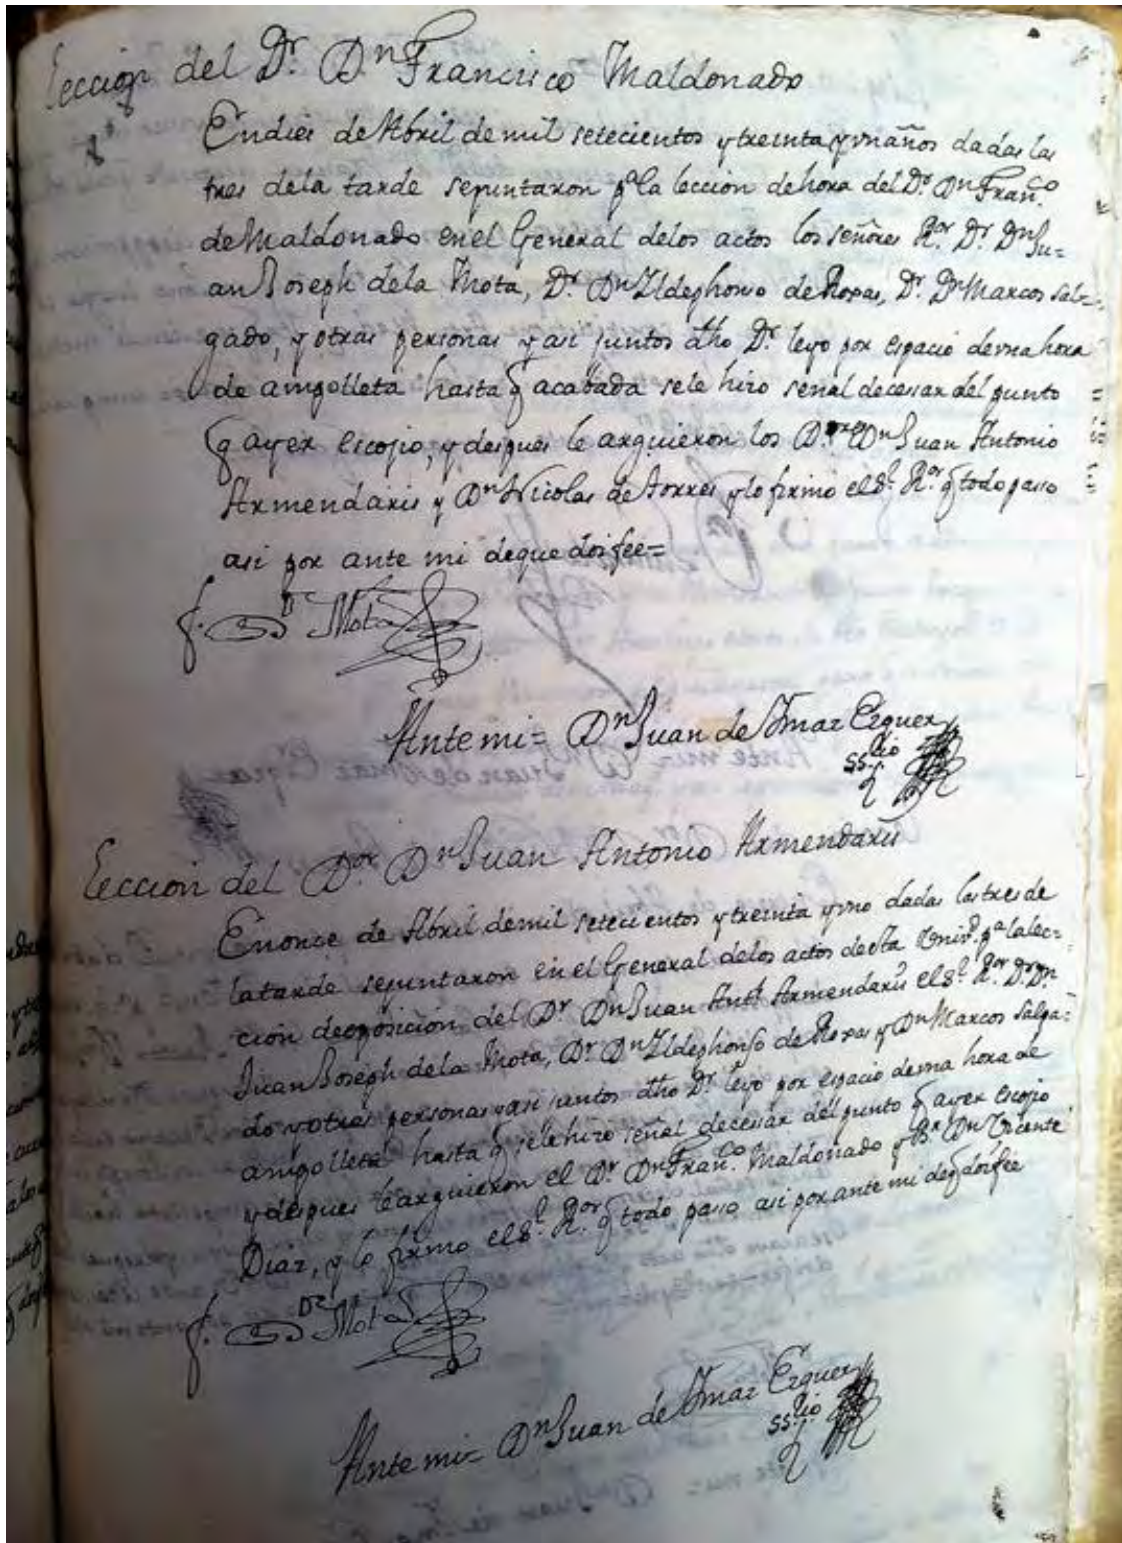 Leccion del Dr. Dn Francisco Maldonado
En dies de Abril de mil setecientos y treinta y vn años dadas las
tres de la tarde se juntaron pa la leccion de hora del Dr. Dn Franco.
de Maldonado en el General de los actos los señores Ror. Dr. Dn Ju=
an Joseph de la Mota, Dr. Dn Ildephonso de Rosas, Dr. Dn Marcos Sal=
gado, y otras personas y asi juntos dho Dr. leyo por espacio de vna hora
de ampolleta hasta q acabada se le hizo señal de cessar del punto
q ayer escojio, y despues le arguieron los Dres. Dn Juan Antonio
Armendaris y Dn Nicolas de Torres y lo firmo el Sr. Ror. q todo passo
asi por ante mi de que doi fee=
Dr Mota
Ante mi= Dn Juan de Ymaz Ezquer
ss.rio
Leccion del Dor Dn Juan Antonio Armendaris
En onze de Abril de mil setecientos y treinta y vno dadas las tres de
la tarde se juntaron en el General de los actos desta Univd. pa la lec=
cion de oposicion del Dr Dn Juan Anto Armendaris el Sr. Ror. Dr. Dn
Juan Joseph de la Mota, Dr. Dn Ildephonso de Rosas y Dn Marcos Salga=
do y otras personas y asi juntos dho Dr. leyo por espacio de vna hora de
ampolleta hasta q se le hizo señal de cessar del punto q ayer escojio
y despues le arguieron el Dr. Dn Franco. Maldonado y Br. Dn Vicente
Diaz, y lo firmo el Sr. Ror. q todo passo asi por ante mi de q doi fee
Dr Mota
Ante mi= Dn Juan de Ymaz Ezquer
ss.rio